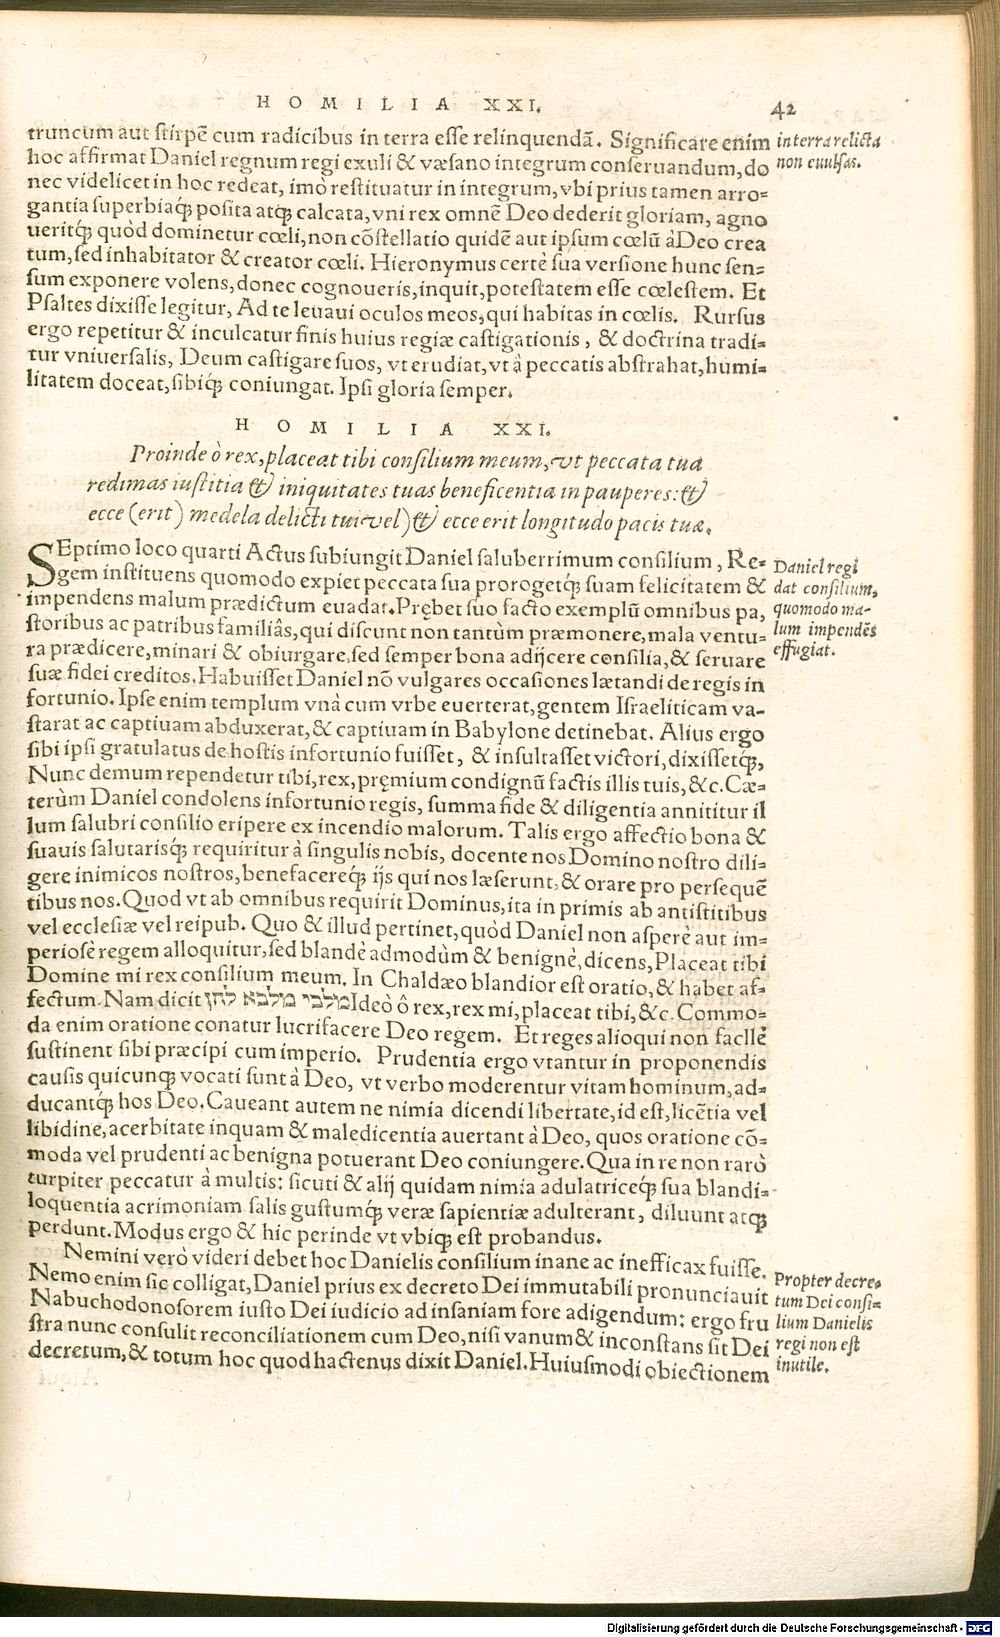 HOMILIA XXI. 42
truncum aut stirpē cum radicibus in terra esse relinquendā. Significare enim
hoc affirmat Daniel regnum regi exuli & væsano integrum conseruandum, do
nec videlicet in hoc redeat, imò restituatur in integrum, vbi prius tamen arro-
gantia superbiaq́; posita atq; calcata, vni rex omnē Deo dederit gloriam, agno
ueritq́; quòd dominetur cœli, non cōstellatio quidē aut ipsum cœlū à Deo crea
tum, sed inhabitator & creator cœli. Hieronymus certè sua versione hunc sen-
sum exponere volens, donec cognoueris, inquit, potestatem esse cœlestem. Et
Psaltes dixisse legitur, Ad te leuaui oculos meos, qui habitas in cœlis. Rursus
ergo repetitur & inculcatur finis huius regiæ castigationis, & doctrina tradi-
tur vniuersalis, Deum castigare suos, vt erudiat, vt à peccatis abstrahat, humi-
litatem doceat, sibiq́; coniungat. Ipsi gloria semper.
in terra relicta
non euulsas.
HOMILIA XXI.
Proinde ò rex, placeat tibi consilium meum, vt peccata tua
redimas iustitia & iniquitates tuas beneficentia in pauperes: &
ecce (erit) medela delicti tui vel) & ecce erit longitudo pacis tuæ.
SEptimo loco quarti Actus subiungit Daniel saluberrimum consilium, Re-
gem instituens quomodo expiet peccata sua prorogetq́; suam felicitatem &
impendens malum prædictum euadat. Prębet suo facto exemplū omnibus pa,
storibus ac patribus familiâs, qui discunt non tantùm præmonere, mala ventu-
ra prædicere, minari & obiurgare, sed semper bona adijcere consilia, & seruare
suæ fidei creditos. Habuisset Daniel nō vulgares occasiones lætandi de regis in
fortunio. Ipse enim templum vnà cum vrbe euerterat, gentem Israeliticam va-
starat ac captiuam abduxerat, & captiuam in Babylone detinebat. Alius ergo
sibi ipsi gratulatus de hostis infortunio fuisset, & insultasset victori, dixissetq́;,
Nunc demum rependetur tibi, rex, pręmium condignū factis illis tuis, &c. Cæ-
terùm Daniel condolens infortunio regis, summa fide & diligentia annititur il
lum salubri consilio eripere ex incendio malorum. Talis ergo affectio bona &
suauis salutarisq́; requiritur à singulis nobis, docente nos Domino nostro dili-
gere inimicos nostros, benefacereq́; ijs qui nos læserunt, & orare pro persequē
tibus nos. Quod vt ab omnibus requirit Dominus, ita in primis ab antistitibus
vel ecclesiæ vel reipub. Quo & illud pertinet, quòd Daniel non asperè aut im-
periosè regem alloquitur, sed blandè admodùm & benignè, dicens, Placeat tibi
Domine mi rex consilium meum. In Chaldæo blandior est oratio, & habet af-
fectum. Nam dicit מלכי מלכא להן Ideò ô rex, rex mi, placeat tibi, &c. Commo-
da enim oratione conatur lucrifacere Deo regem. Et reges alioqui non facilè
sustinent sibi præcipi cum imperio. Prudentia ergo vtantur in proponendis
causis quicunq; vocati sunt à Deo, vt verbo moderentur vitam hominum, ad-
ducantq́; hos Deo. Caueant autem ne nimia dicendi libertate, id est, licētia vel
libidine, acerbitate inquam & maledicentia auertant à Deo, quos oratione cō-
moda vel prudenti ac benigna potuerant Deo coniungere. Qua in re non rarò
turpiter peccatur à multis: sicuti & alij quidam nimia adulatriceq́; sua blandi-
loquentia acrimoniam salis gustumq́; veræ sapientiæ adulterant, diluunt atq;
perdunt. Modus ergo & hic perinde vt vbiq; est probandus.
Daniel regi
dat consilium,
quomodo ma-
lum impendēs
effugiat.
Nemini verò videri debet hoc Danielis consilium inane ac inefficax fuisse.
Nemo enim sic colligat, Daniel prius ex decreto Dei immutabili pronunciauit
Nabuchodonosorem iusto Dei iudicio ad insaniam fore adigendum: ergo fru
stra nunc consulit reconciliationem cum Deo, nisi vanum & inconstans sit Dei
decretum, & totum hoc quod hactenus dixit Daniel. Huiusmodi obiectionem
Propter decre-
tum Dei consi-
lium Danielis
regi non est
inutile.
Digitalisierung gefördert durch die Deutsche Forschungsgemeinschaft - DFG